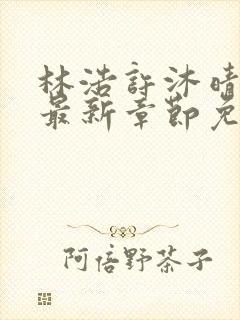 林浩許沐晴
最新章節免
阿倍野茶子